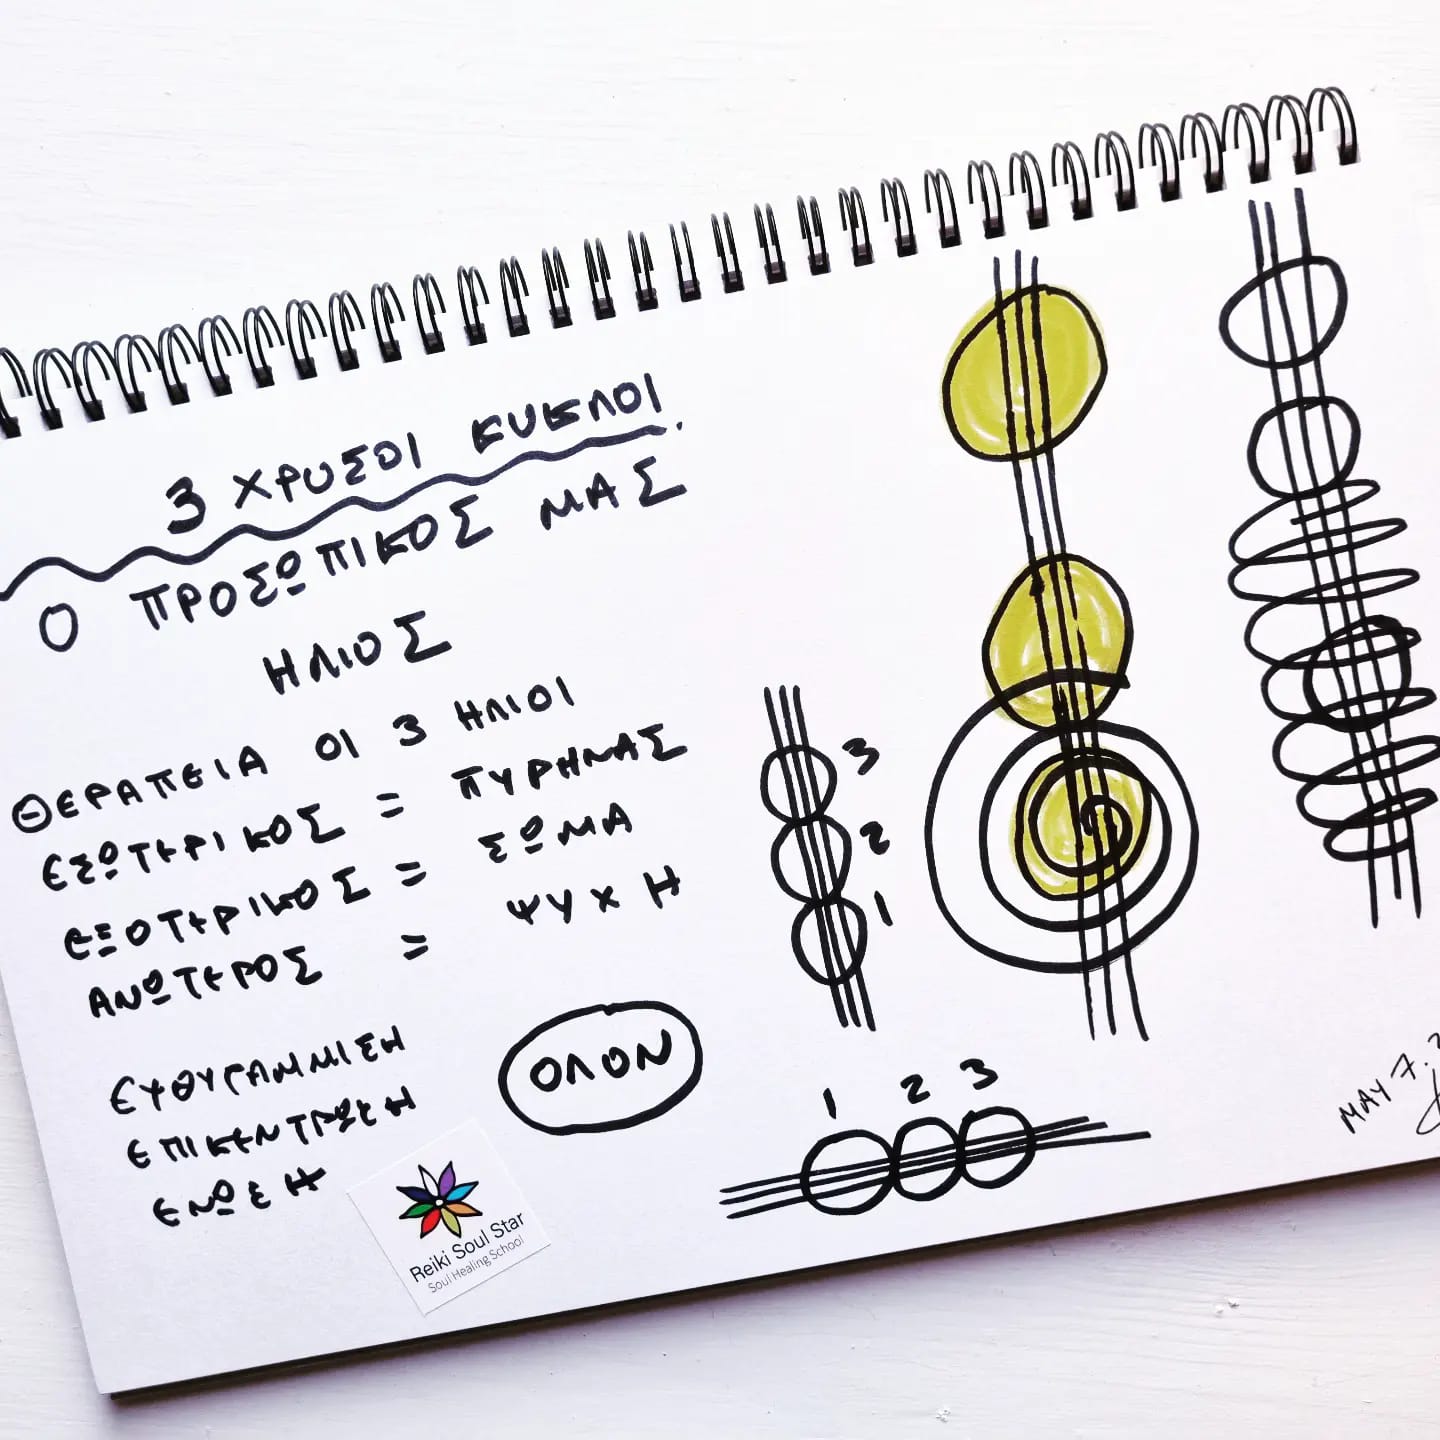 3 ΧΡΥΣΟΙ ΚΥΚΛΟΙ.
Ο ΠΡΟΣΩΠΙΚΟΣ ΜΑΣ
ΗΛΙΟΣ
ΘΕΡΑΠΕΙΑ ΟΙ 3 ΗΛΙΟΙ
ΕΣΩΤΕΡΙΚΟΣ = ΠΥΡΗΝΑΣ
ΕΞΟΤΕΡΙΚΟΣ = ΣΩΜΑ
ΑΝΩΤΕΡΟΣ = ΨΥΧΗ
ΕΥΘΥΓΑΜΜΙΣΗ
ΕΠΙΚΕΝΤΡΩΣΗ
ΕΝΩΣΗ
ΟΛΟΝ
Reiki Soul Star
Soul Healing School
3
2
1
1 2 3
MAY 7.